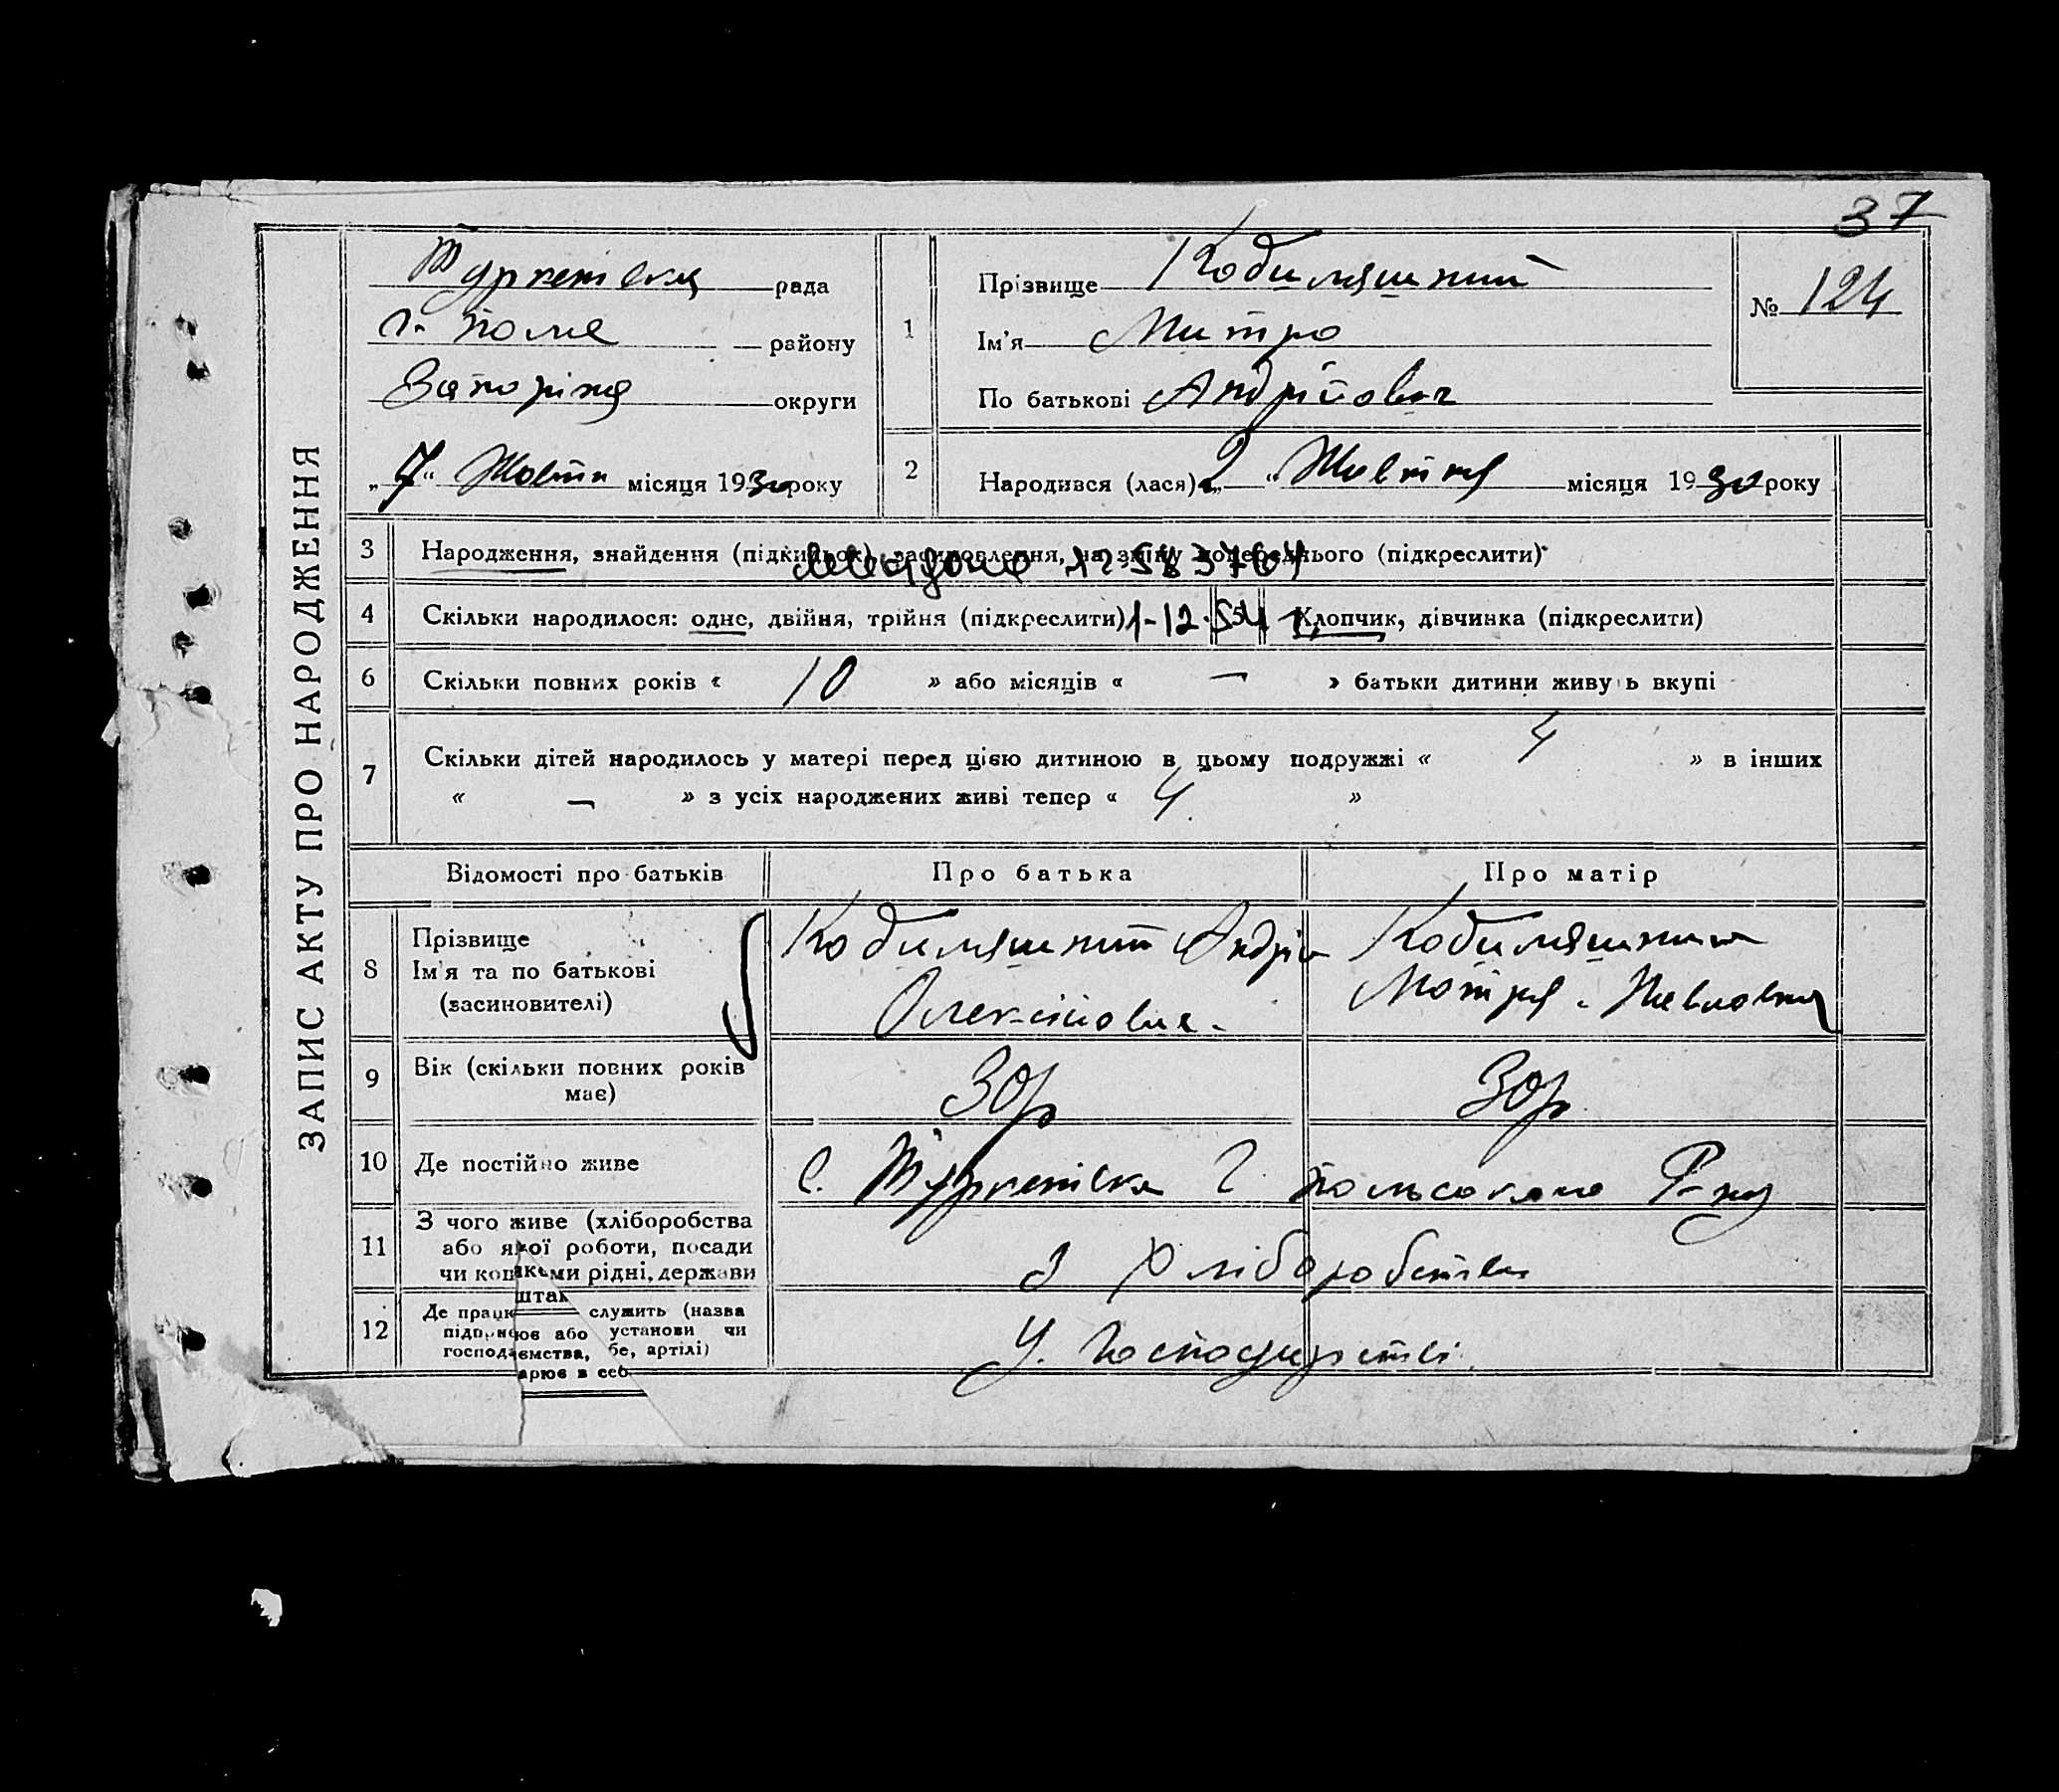 37
ЗАПИС АКТУ ПРО НАРОДЖЕННЯ
Туркенівка рада
Г. Поле району
Запоріжя округи
„7“ Жовтн місяця 1930 року
1
Прізвище Кобиляцький
Ім'я Митро
По батькові Андрійович
№ 124
2
Народився (лася) „2“ Жовтня місяця 1930 року
3 Народження, знайдення (підкидьок), засиновлення, на зміну попереднього (підкреслити)
4 Скільки народилося: одне, двійня, трійня (підкреслити) 1-12-54 Хлопчик, дівчинка (підкреслити)
6 Скільки повних років « 10 » або місяців « — » батьки дитини живуть вкупі
7 Скільки дітей народилось у матері перед цією дитиною в цьому подружжі « 4 » в інших
« — » з усіх народжених живі тепер « 4 »
Відомості про батьків Про батька Про матір
8 Прізвище
Ім'я та по батькові
(засиновителі)
Андрій
Олексійович
Мотря Павловна
9 Вік (скільки повних років
має)
30р 30р
10 Де постійно живе с. Туркенівка Г Польського Р-ну
11 З чого живе (хліборобства
або якої роботи, посади
чи коштами рідні, держави
З Хліборобства
12 Де працює або служить (назва
установи чи
бе, артілі)
У. Господарстві